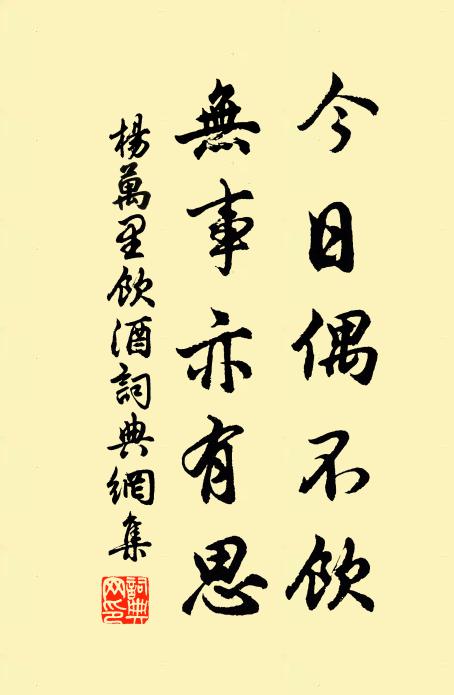 今日偶不飲
無事亦有思
楊萬里飲酒詞典網集